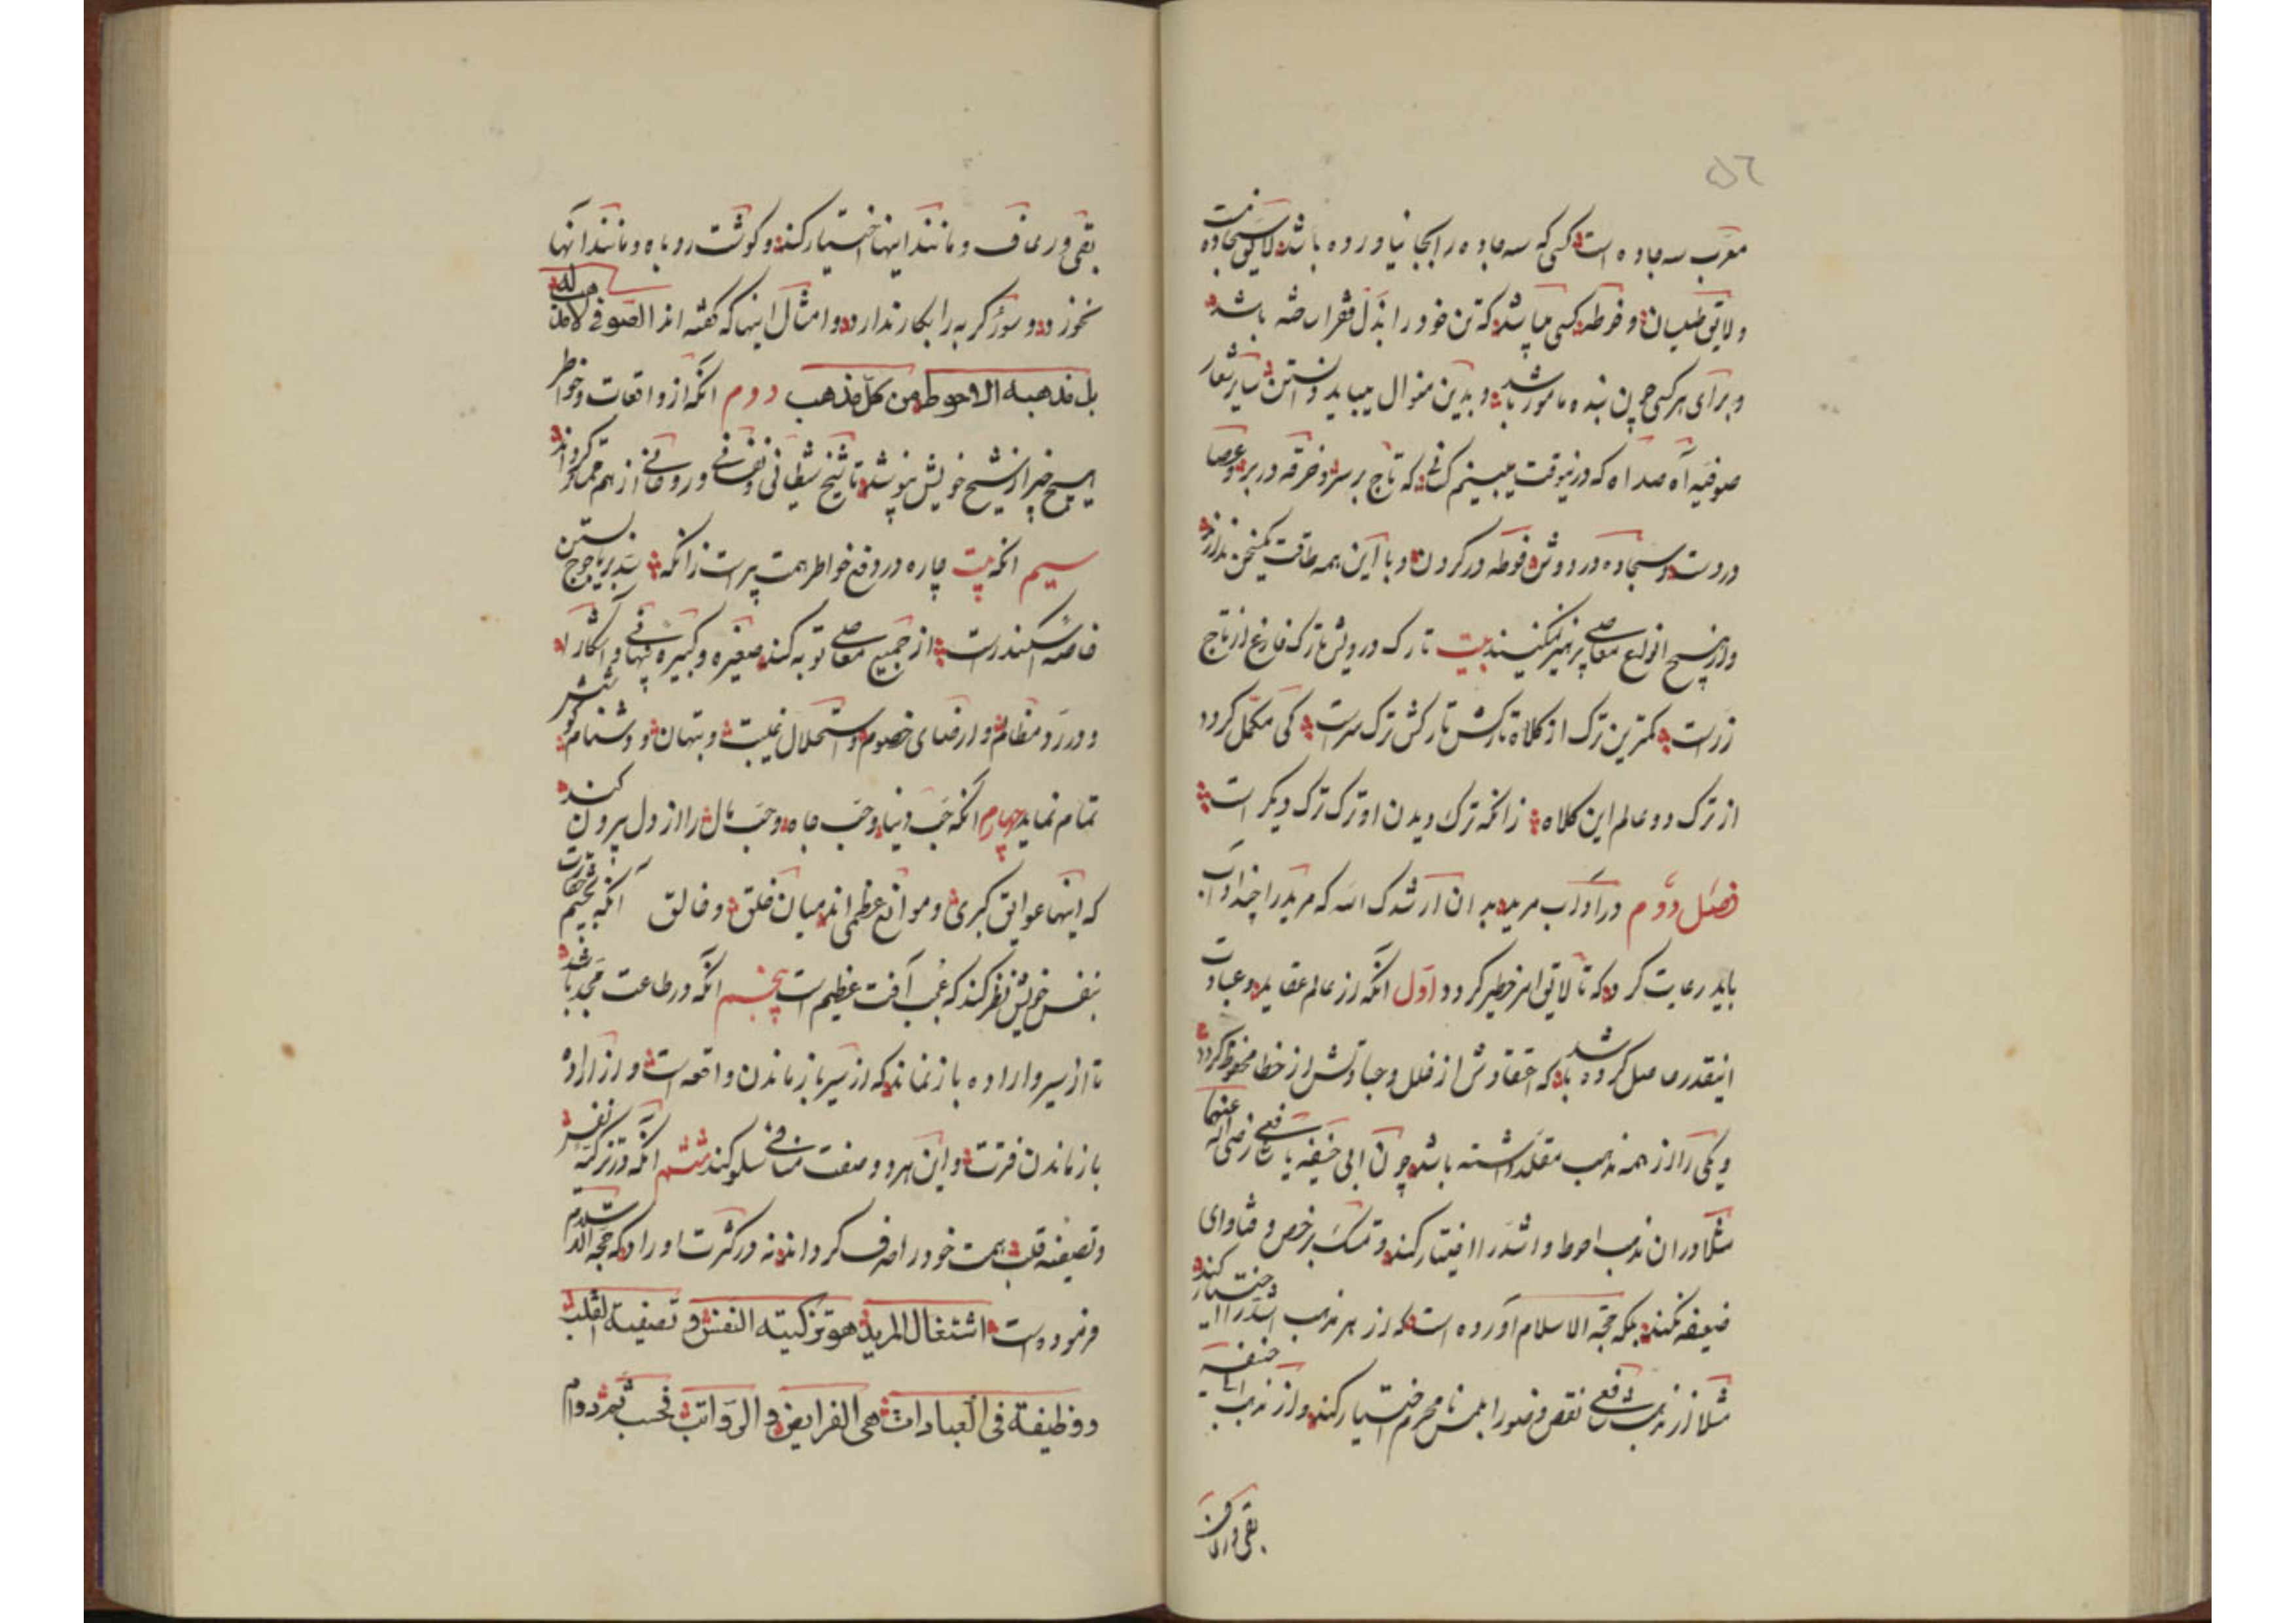 ۵۶
معرب سه جاده است کسی که سه جاده را بجا نیاورده باشد لایق سجاده نیست
ولایق طیلسان و فوطه کسی میباشد که تن خود را بذل فقرا ساخته باشد
و برای هر کسی چون بنده مامور باشد و بدین منوال میباید دانستن سایر شعار
صوفیه آه صد آه که درینوقت میبینم کسانی که تاج بر سر و خرقه در بر و عصا
در دست و سجاده در دوش و فوطه در کردن و با این همه طاقت یکسخن ندارند
و از هیچ انواع معاصی پرهیز نمیکنند بیت تارک درویش تارک فارغ از تاج
زرست کمترین ترک از کلاه تارکش ترک سرست کی مکمل کردد
از ترک دو عالم این کلاه زانکه ترک دیدن او ترک ترک دیکر است
فصل دوم در آداب مرید بدان ارشدک الله که مرید را چند آداب
باید رعایت کرد که تا لایق امر خطیر کردد اول آنکه از عالم عقاید و عبادت
اینقدر حاصل کرده باشد که اعتقادش از خلل و عبادتش از خطا محفوظ کردد
و یکی را از همه مذهب مقلد داشته باشد چون ابی حنیفه یا شافعی رضی الله عنهما
مثلا در ان مذهب احوط و اشد را اختیار کند و تمسک برخص و فتاوای
ضعیفه نکند بلکه حجة الاسلام آورده است که از هر مذهب اشد را اختیار کند
مثلا از مذهب شافعی نقض وضو را بلمس نامحرم اختیار کند و از مذهب ابی حنیفه
بقی و رعاف
بقی و رعاف و مانند اینها اختیار کند و کوشت روباه و مانند آنها
نخورد و سؤر کربه را بکار ندارد و امثال اینها که کفته اند الصوفی لا مذهب له
بل مذهبه الاحوط من کل مذهب دوم آنکه از واقعات و خواطر
هیچ خبر از شیخ خویش نپوشد تا شیخ شیطانی و نفسانی و روحانی از هم جدا کرداند
سیم آنکه بیت چاره در دفع خواطر همت پیرست زانکه سد بر یاجوج بستن
خاصه اسکندرست از جمیع معاصی توبه کند صغیره و کبیره پنهانی و آشکارا
و در رد مظالم و ارضای خصوم و استحلال غیبت و بهتان و دشنام کوشش
تمام نماید چهارم آنکه حب دنیا و حب جاه و حب مال را از دل بیرون کند
که اینها عوایق کبری و موانع عظمی اند میان خلق و خالق آنکه بچشم حقارت
بنفس خویش نظر کند که عجب آفت عظیم است پنجم آنکه در طاعت مجد باشد
تا از سیر و اراده باز نماند که از سیر باز ماندن واقعه است و از اراده
باز ماندن فترت و این هر دو صفت منافی سلوکند ششم آنکه در تزکیه نفس
و تصفیه قلب همت خود را صرف کرداند نه در کثرت اوراد که حجة الاسلام
فرموده است اشتغال المرید هو تزکیته النفس و تصفیته القلب
و وظیفة فی العبادات هی الفرایض و الرواتب فحسب ثم دوام